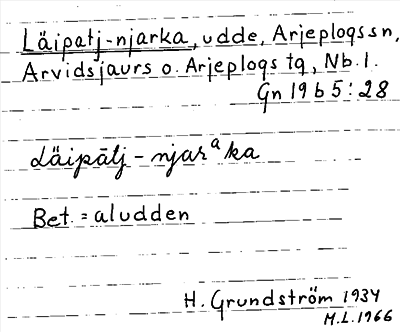 Läipatj-njarka, udde, Arjeplogs sn,
Arvidsjaurs o. Arjeplogs tg, Nb. l.
Gn 19 b 5 : 28
Läipātj - njarᵃka
Bet. = aludden
H. Grundström 1934
M.L. 1966